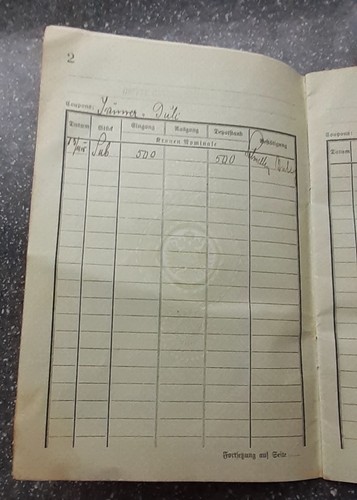 2
Coupons: Jänner - Juli
Datum Stück Eingang Ausgang Depotstand Bestätigung
Kronen Nominale
Sub 500 500
Fortsetzung auf Seite
Datum